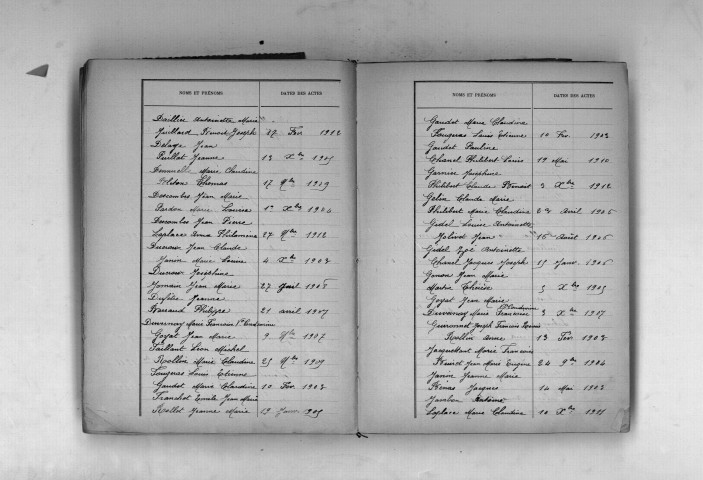 NOMS ET PRÉNOMS DATES DES ACTES
Daillie Antoinette Marie
Juillard Benoit Joseph 27 Fev 1912
Delaye Jean
Peillet Jeanne 13 Xbre 1905
Marie Claudine
Thomas 17 9bre 1909
Descombes Jean Marie
Pardon Marie Louise 1er Xbre 1904
Descombes Jean Pierre
Laplace Anna Philomène 27 9bre 1912
Dunoux Jean Claude
Janin Marie Louise 4 Xbre 1903
Dunoux Joséphine
Jomain Jean Marie 27 1908
Jeanne
Philippe 21 avril 1907
Duvernay Marie Francoise Vve Condemine
Goyat Jean Marie 9 9bre 1907
Faillant Léon Michel
Rollin Marie Claudine 25 9bre 1909
Fougnas Louis Etienne
Gaudet Marie Claudine 10 Fev 1903
Franchet Emile Jean Marie
Rollet Jeanne Marie 19 Janv 1905
NOMS ET PRÉNOMS DATES DES ACTES
Gaudet Marie Claudine
Fougnas Louis Etienne 10 Fev 1903
Gaudet Pauline
Chanel Philibert Louis 19 Mai 1910
Garnier Joséphine
Philibert Claude Benoit 3 Xbre 1912
Gelin Claude Marie
Philibert Marie Claudine 28 Avril 1906
Gidel Louise Antoinette
Jolivet Jean 16 Août 1906
Gidel Zoé Antoinette
Chanel Jacques Joseph 15 Janv 1906
Gonon Jean Marie
Martin 2 Xbre 1905
Goyat Jean Marie
Duvernay Marie Francoise Vve Condemine 9 Xbre 1907
Guironnet Joseph Francois
Rollin Anne 12 Fev 1903
Jacquettant Marie Francoise
Benoit Jean Marie Eugène 24 9bre 1904
Janin Jeanne Marie
Jacques 14 Mai 1903
Jambon Antoine
Laplace Marie Claudine 10 Xbre 1911